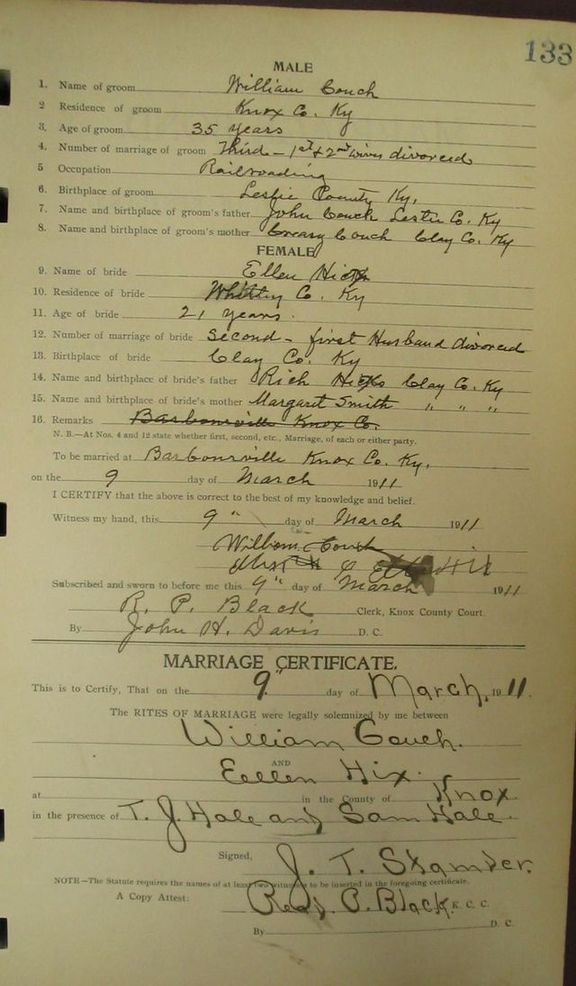 133
MALE
1. Name of groom William Couch
2 Residence of groom Knox Co. Ky
3. Age of groom 35 years
4. Number of marriage of groom Third - 1st & 2nd wives divorced
5 Occupation Railroading
6. Birthplace of groom Leslie County Ky.
7. Name and birthplace of groom's father John Couch Leslie Co. Ky
8. Name and birthplace of groom's mother Creasy Couch Clay Co. Ky
FEMALE
9. Name of bride Ellen
10. Residence of bride Whitley Co. Ky
11. Age of bride 21 years.
12. Number of marriage of bride Second - first Husband divorced
13. Birthplace of bride Clay Co. Ky
14. Name and birthplace of bride's father Rich Clay Co. Ky
15. Name and birthplace of bride's mother Margaret Smith " " "
16. Remarks Barbourville Knox Co.
N. B.—At Nos. 4 and 12 state whether first, second, etc., Marriage, of each or either party.
To be married at Barbourville Knox Co. Ky,
on the 9 day of March 1911
I CERTIFY that the above is correct to the best of my knowledge and belief.
Witness my hand, this 9" day of March 1911
William Couch
Subscribed and sworn to before me this 9" day of March 1911
R. P. Black Clerk, Knox County Court.
By John H. Davis D. C.
MARRIAGE CERTIFICATE.
This is to Certify, That on the 9" day of March, 1911.
The RITES OF MARRIAGE were legally solemnized by me between
William Couch.
AND
Eellen Hix.
at in the County of Knox
in the presence of T. J. Hale and Sam Hale.
Signed, J. T. Stamper.
NOTE—The Statute requires the names of at least two witnesses to be inserted in the foregoing certificate.
A Copy Attest: P. Black K. C. C.
By D. C.